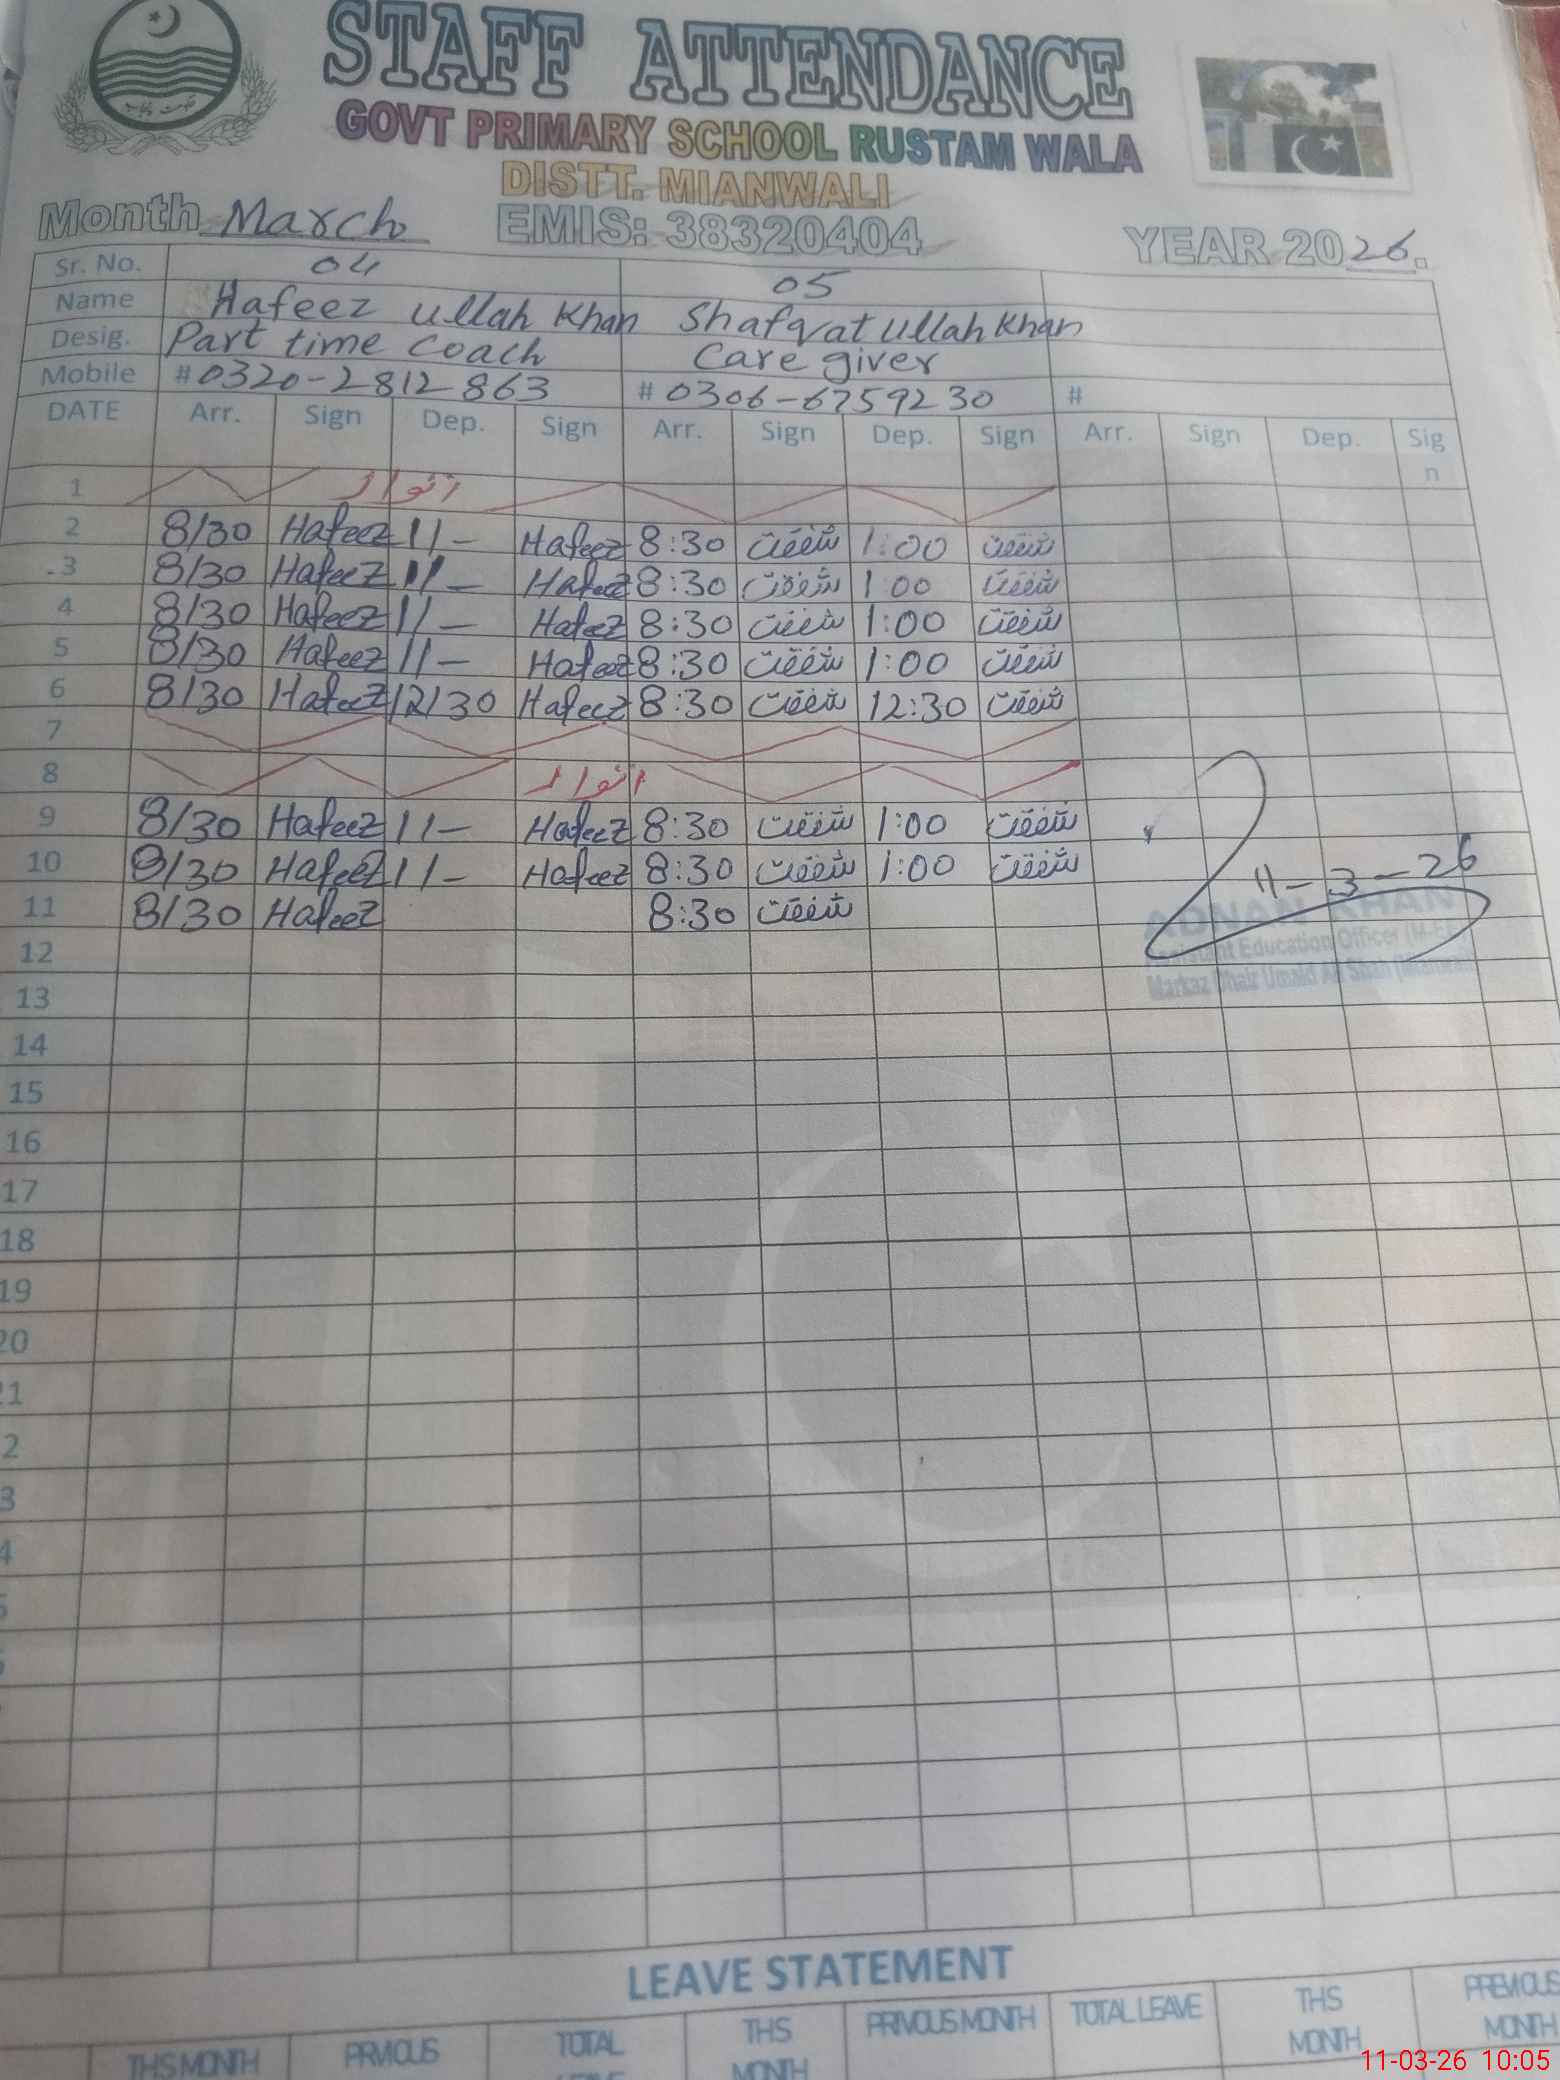 STAFF ATTENDANCE
GOVT PRIMARY SCHOOL RUSTAM WALA
DISTT. MIANWALI
Month March EMIS: 38320404 YEAR 2026.
Sr. No. 04 05
Name Hafeez ullah Khan Shafqat ullah Khan
Desig. Part time coach Care giver
Mobile #0320-2812863 #0306-6759230 #
DATE Arr. Sign Dep. Sign Arr. Sign Dep. Sign Arr. Sign Dep. Sign
1 اتوار
2 8/30 Hafeez 11- Hafeez 8:30 شفقت 1:00 شفقت
3 8/30 Hafeez 11- Hafeez 8:30 شفقت 1:00 شفقت
4 8/30 Hafeez 11- Hafeez 8:30 شفقت 1:00 شفقت
5 8/30 Hafeez 11- Hafeez 8:30 شفقت 1:00 شفقت
6 8/30 Hafeez 12/30 Hafeez 8:30 شفقت 12:30 شفقت
7
8 اتوار
9 8/30 Hafeez 11- Hafeez 8:30 شفقت 1:00 شفقت
10 8/30 Hafeez 11- Hafeez 8:30 شفقت 1:00 شفقت
11-3-26
11 8/30 Hafeez 8:30 شفقت
ADNAN KHAN
Assistant Education Officer
12
Markaz Umaid Ali Shah
13
14
15
16
17
18
19
20
21
2
3
4
5
LEAVE STATEMENT
THS MONTH PRVIOUS TOTAL THS MONTH PRIVOUS MONTH TOTAL LEAVE THS MONTH PREVIOUS MONTH
11-03-26 10:05